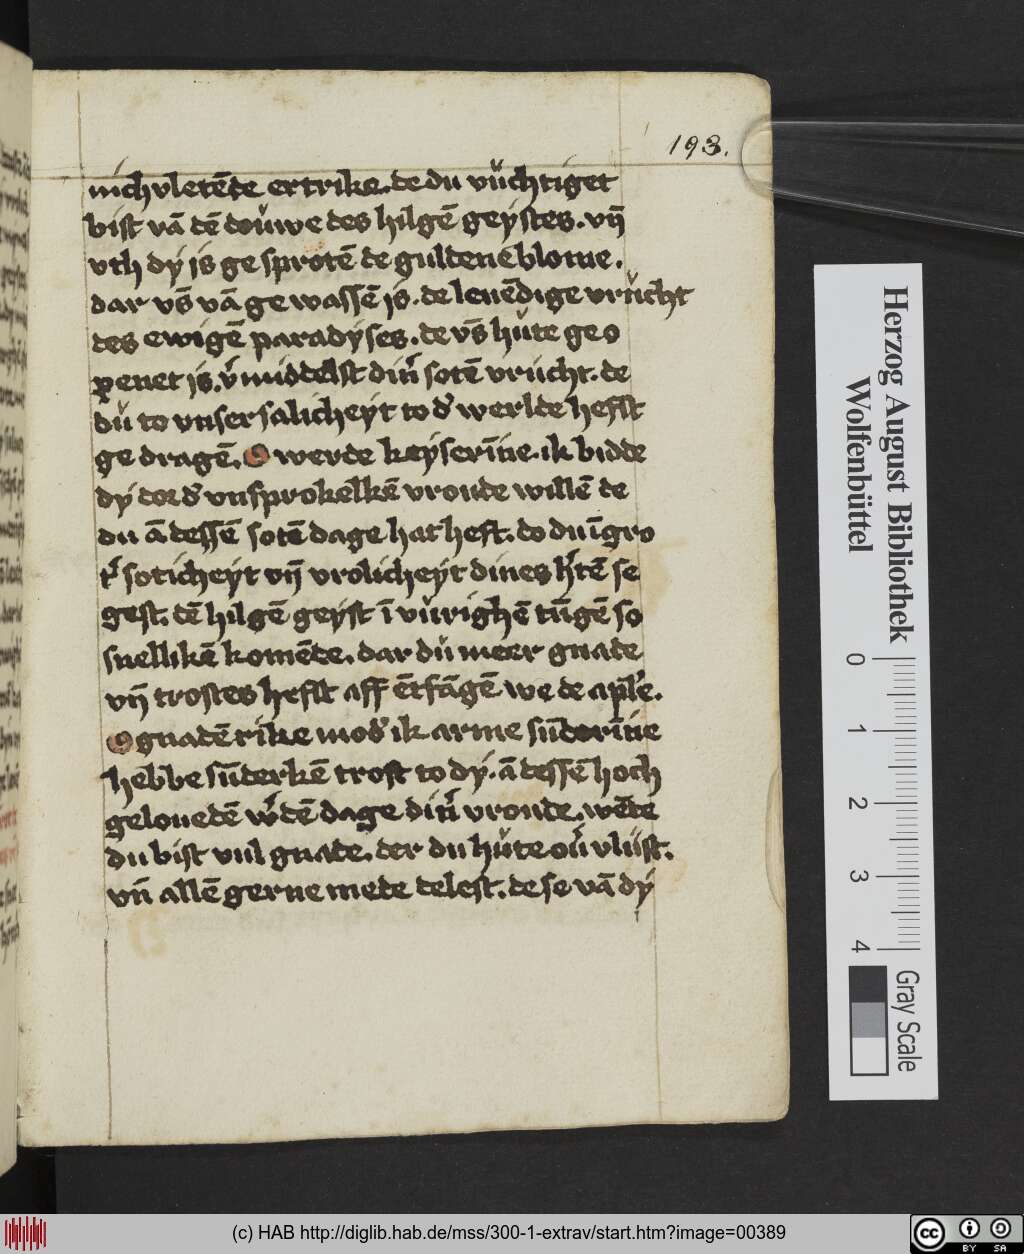 193.
nich vletēde ertrike. de du vůchtiget
bist vā dē doůwe des hilgē geystes. vñ
vth dy is ge sprotē de guldene blome.
dar vs̄ vā ge wassē is. de leuēdige vrůcht
des ewigē paradyses. de vs̄ hůte geo
penet is. v̛middelst din̛ sotē vrůcht. de
du to vnser salicheyt to d̛ werlde hefst
ge dragē. O werde keyserīne. ik bidde
dy dord̛ vnsprokelkē vroude willē de
du ā dessē sotē dage hat hefst. do du ī gro
t̛ soticheyt vñ vrolicheyt dines h̛tē se
gest. dē hilgē geyst ī vůrighē tūgē so
snellikē komēde. dar dů meer gnade
vñ trostes hefst aff ētfāgē we de aple̛.
O gnadē rike mod̛ ik arme sūderīne
hebbe sūderkē trost to dy. ā dessē hoch
gelouedē w̛dē dage din̛ vroude. wēde
du bist vul gnade. der du hůte oư vlůst.
vñ allē gerne mede delest. de se vā dy
Herzog August Bibliothek
Wolfenbüttel
0 1 2 3 4
Gray Scale
(c) HAB http://diglib.hab.de/mss/300-1-extrav/start.htm?image=00389
cc BY SA